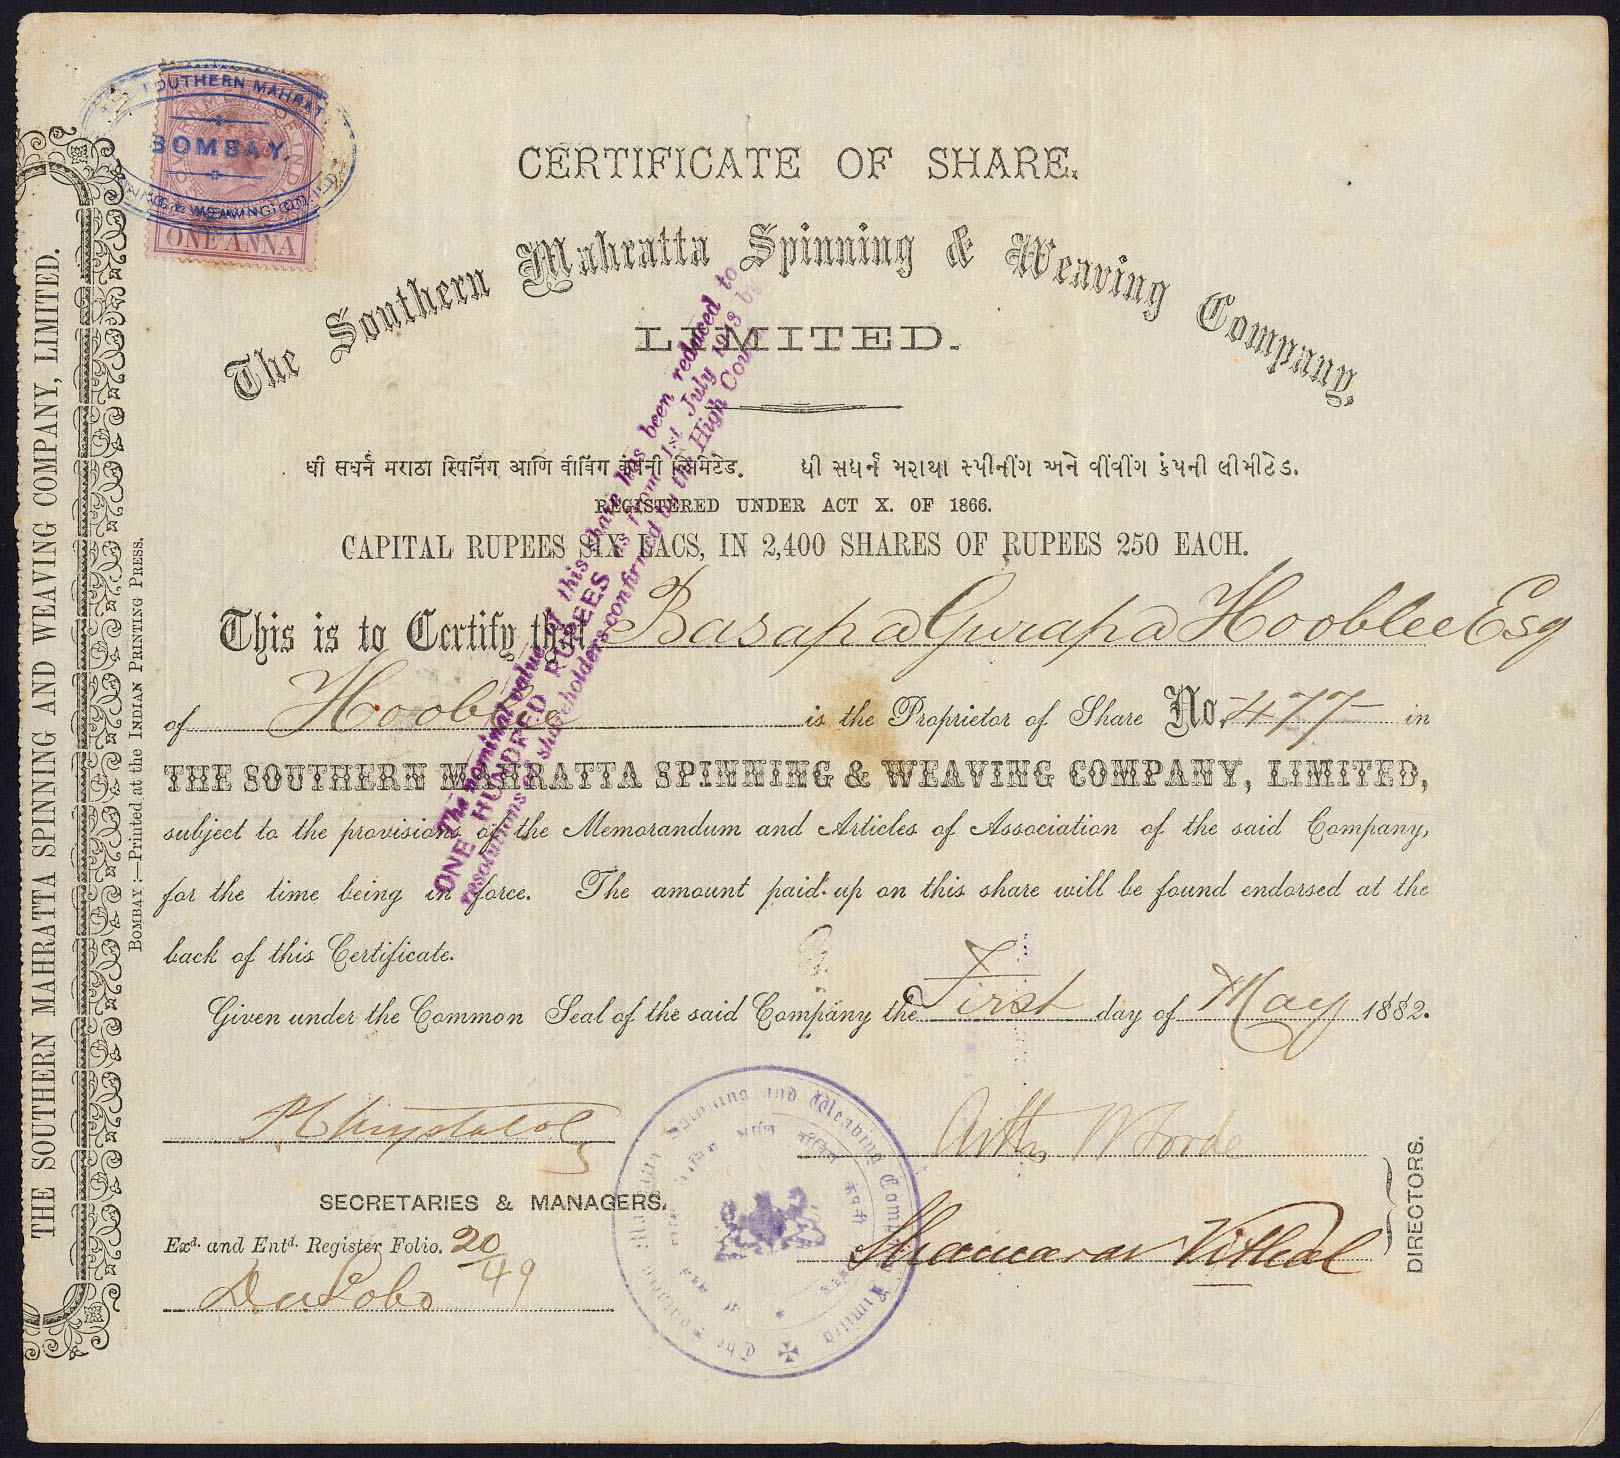 SOUTHERN MAHRAT
BOMBAY.
& WEAVING CO
ONE ANNA
CERTIFICATE OF SHARE.
The Southern Mahratta Spinning & Weaving Company,
LIMITED.
धी सधर्न मराठा स्पिनिंग आणि वीविंग कंपनी लिमिटेड. ધી સધર્ન મરાથા સ્પીનીંગ અને વીંવીંગ કંપની લીમીટેડ.
REGISTERED UNDER ACT X. OF 1866.
CAPITAL RUPEES SIX LACS, IN 2,400 SHARES OF RUPEES 250 EACH.
This is to Certify that Basapa Gurapa Hooblee Esq
of Hooblee is the Proprietor of Share No. 477 in
THE SOUTHERN MAHRATTA SPINNING & WEAVING COMPANY, LIMITED,
subject to the provisions of the Memorandum and Articles of Association of the said Company,
for the time being in force. The amount paid-up on this share will be found endorsed at the
back of this Certificate.
Given under the Common Seal of the said Company the First day of May 1882.
SECRETARIES & MANAGERS.
Exd. and Entd. Register Folio. 20/49
DIRECTORS.
Shamarav Vithal
The Southern Mahratta Spinning and Weaving Company Limited
The nominal value of this share has been reduced to
ONE HUNDRED RUPEES as from 1st July 1913 by
resolutions of shareholders confirmed by the High Court
THE SOUTHERN MAHRATTA SPINNING AND WEAVING COMPANY, LIMITED.
BOMBAY:—Printed at the INDIAN PRINTING PRESS.